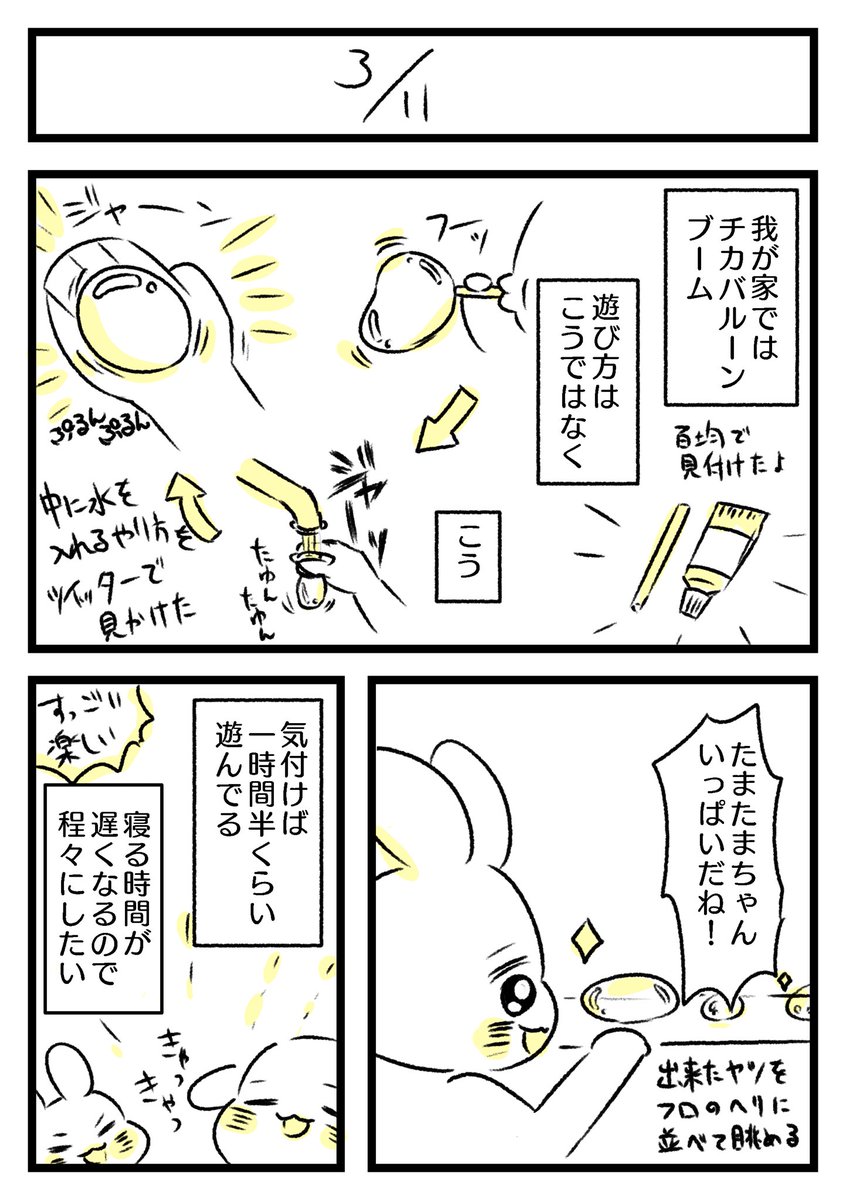 3/11
我が家では
チカバルーン
ブーム
百均で
見付けたよ
遊び方は
こうではなく
フーッ
こう
ジャーッ
たゆんたゆん
中に水を
入れるやり方を
ツイッターで
見かけた
ジャーー
ぷるんぷるん
たまたまちゃん
いっぱいだね！
出来たヤツを
フロのヘリに
並べて眺める
気付けば
一時間半くらい
遊んでる
すっごい
楽しい
寝る時間が
遅くなるので
程々にしたい
きゃっ
きゃっ